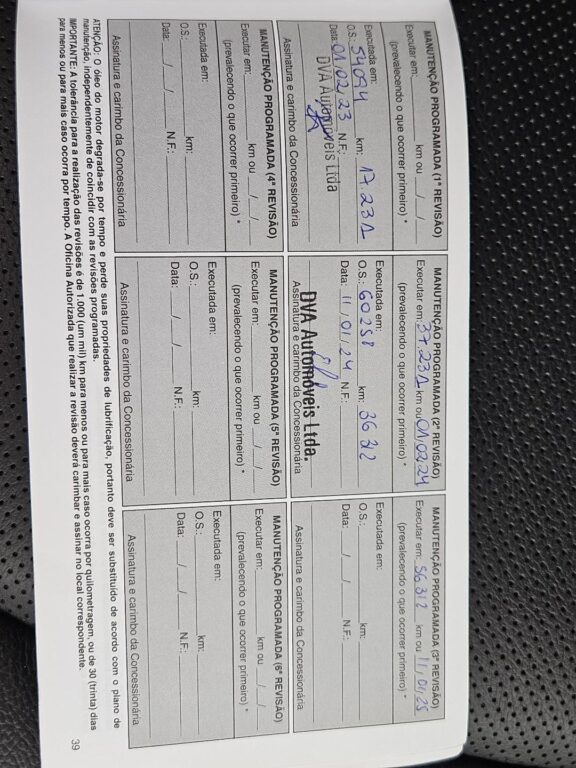 MANUTENÇÃO PROGRAMADA (1ª REVISÃO)
Executar em: km ou / /
(prevalecendo o que ocorrer primeiro) *
Executada em:
O.S.: 54094 km: 17.231
Data: 01/02/23 N.F.:
DVA Automóveis Ltda
MANUTENÇÃO PROGRAMADA (2ª REVISÃO)
Executar em: 37.231 km ou 01/02/24
(prevalecendo o que ocorrer primeiro) *
Executada em:
O.S.: 60258 km: 36312
Data: 11/01/24 N.F.:
DVA Automóveis Ltda.
Assinatura e carimbo da Concessionária
MANUTENÇÃO PROGRAMADA (3ª REVISÃO)
Executar em: 56312 km ou 11/01/25
(prevalecendo o que ocorrer primeiro) *
Executada em:
O.S.: km:
Data: / / N.F.:
Assinatura e carimbo da Concessionária
MANUTENÇÃO PROGRAMADA (4ª REVISÃO)
Executar em: km ou / /
(prevalecendo o que ocorrer primeiro) *
Executada em:
O.S.: km:
Data: / / N.F.:
Assinatura e carimbo da Concessionária
MANUTENÇÃO PROGRAMADA (5ª REVISÃO)
Executar em: km ou / /
(prevalecendo o que ocorrer primeiro) *
Executada em:
O.S.: km:
Data: / / N.F.:
Assinatura e carimbo da Concessionária
MANUTENÇÃO PROGRAMADA (6ª REVISÃO)
Executar em: km ou / /
(prevalecendo o que ocorrer primeiro) *
Executada em:
O.S.: km:
Data: / / N.F.:
Assinatura e carimbo da Concessionária
ATENÇÃO: O óleo do motor degrada-se por tempo e perde suas propriedades de lubrificação, portanto deve ser substituído de acordo com o plano de
manutenção, independentemente de coincidir com as revisões programadas.
IMPORTANTE: A tolerância para a realização das revisões é de 1.000 (um mil) km para menos ou para mais caso ocorra por quilometragem, ou de 30 (trinta) dias
para menos ou para mais caso ocorra por tempo. A Oficina Autorizada que realizar a revisão deverá carimbar e assinar no local correspondente.
39